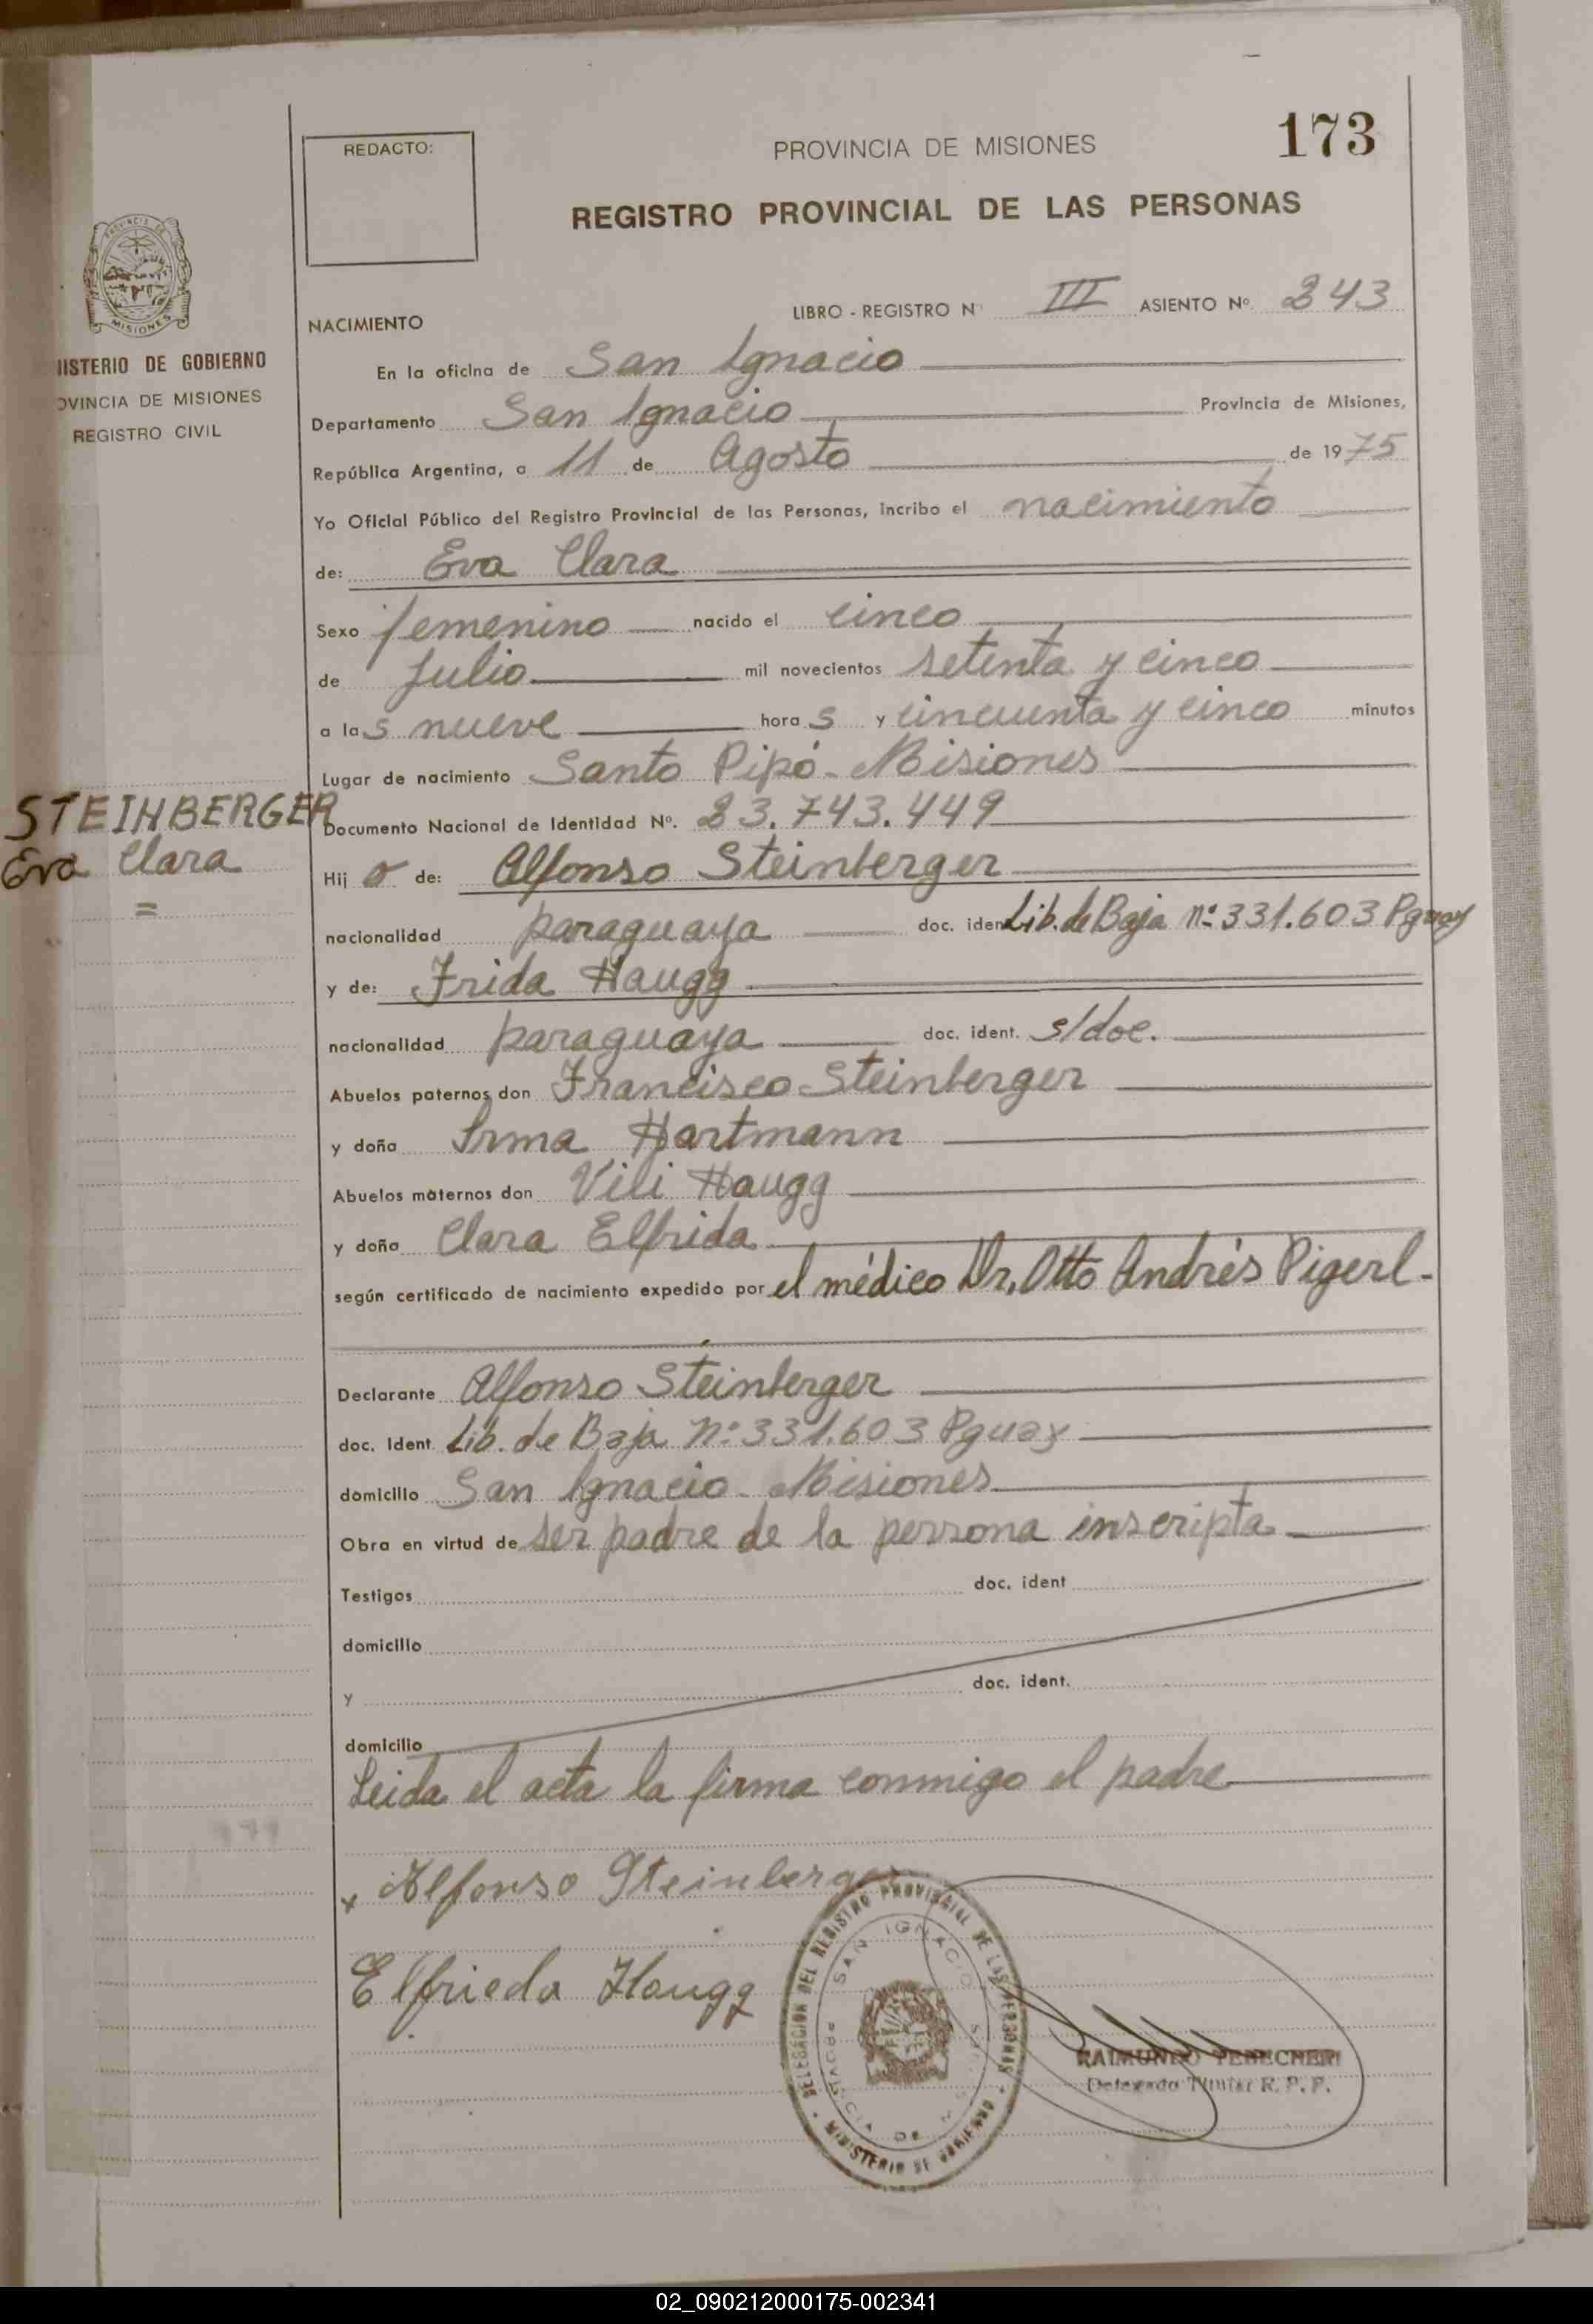 173
REDACTO:
PROVINCIA DE MISIONES
REGISTRO PROVINCIAL DE LAS PERSONAS
PROVINCIA DE
MISIONES
NISTERIO DE GOBIERNO
OVINCIA DE MISIONES
REGISTRO CIVIL
LIBRO - REGISTRO N° III ASIENTO N° 243
NACIMIENTO
En la oficina de San Ignacio
Departamento San Ignacio Provincia de Misiones,
República Argentina, a 11 de Agosto de 1975
Yo Oficial Público del Registro Provincial de las Personas, incribo el nacimiento
de: Eva Clara
Sexo femenino nacido el cinco
de Julio mil novecientos setenta y cinco
a las nueve horas y cincuenta y cinco minutos
Lugar de nacimiento Santo Pipó - Misiones
STEINBERGER
Eva Clara
=
Documento Nacional de Identidad N°. 23.743.449
Hij a de: Alfonso Steinberger
nacionalidad paraguaya doc. iden Lib. de Baja n° 331.603 Pguay
y de: Frida Haugg
nacionalidad paraguaya doc. ident. s/doc.
Abuelos paternos don Francisco Steinberger
y doña Irma Hartmann
Abuelos maternos don Vili Haugg
y doña Clara Elfrida
según certificado de nacimiento expedido por el médico Dr. Otto Andrés Pigerl -
Declarante Alfonso Steinberger
doc. Ident Lib. de Baja n° 331.603 Pguay
domicilio San Ignacio - Misiones
Obra en virtud de ser padre de la persona inscripta
Testigos doc. ident
domicilio
y doc. ident.
domicilio
Leida el acta la firma conmigo el padre
x Alfonso Steinberger
Elfrieda Haugg
DELEGACION DEL REGISTRO PROVINCIAL DE LAS PERSONAS
MINISTERIO DE GOBIERNO
SAN IGNACIO
PROVINCIA DE
RAIMUNDO
Delegado Titular R. P. P.
02_090212000175-002341